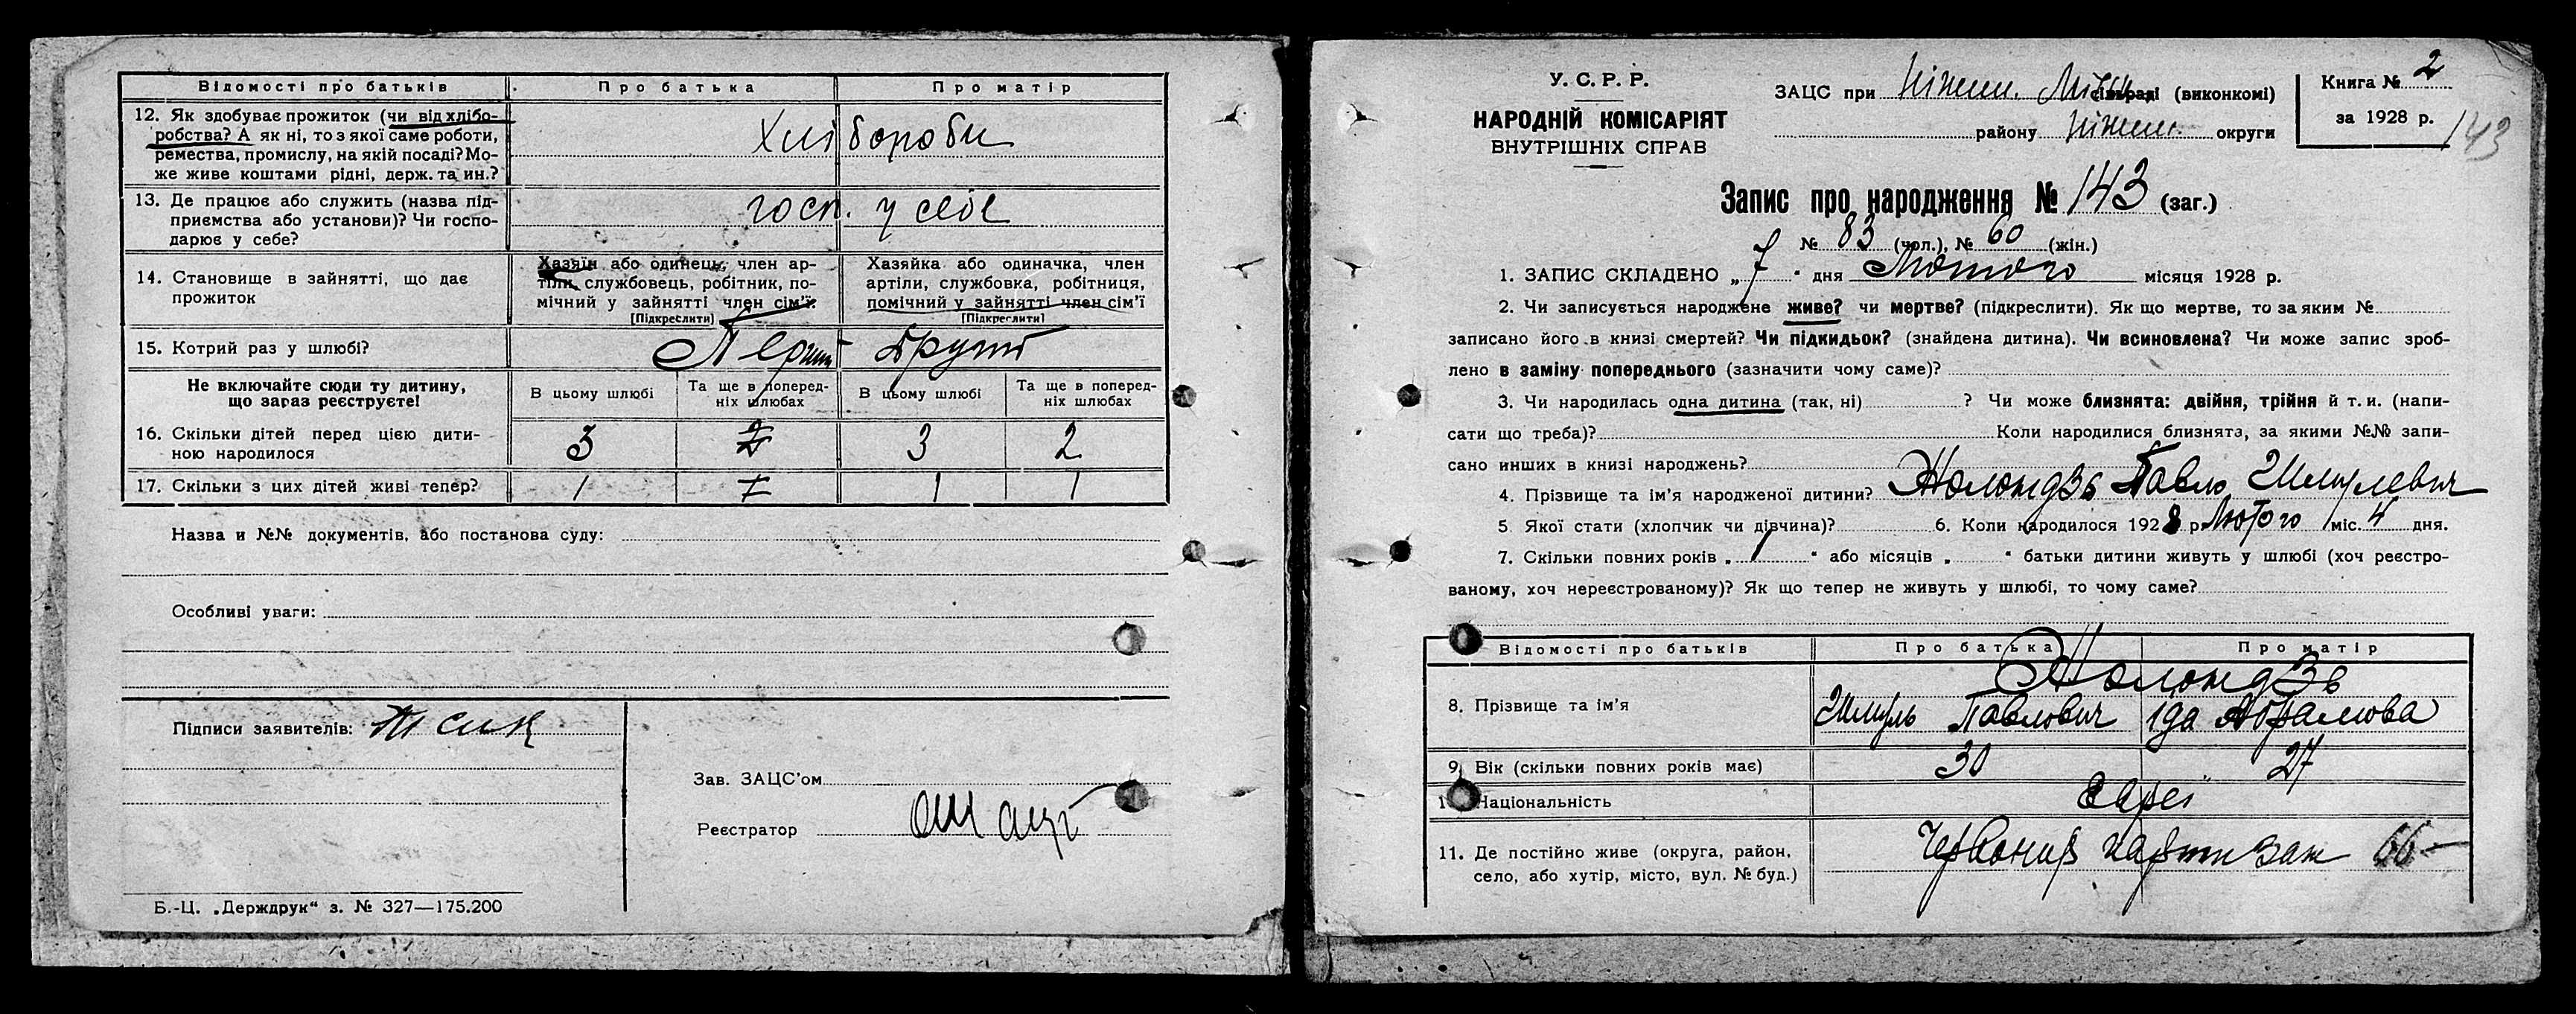 Відомості про батьків Про батька Про матір
12. Як здобуває прожиток (чи від хлібо-
робства? А як ні, то з якої саме роботи,
ремества, промислу, на якій посаді? Мо-
же живе коштами рідні, держ. та ин.?
Хлібороби
13. Де працює або служить (назва під-
приємства або установи)? Чи госпо-
дарює у себе?
госп. у себе
14. Становище в зайнятті, що дає
прожиток
Хазяїн або одинець, член ар-
тіли, службовець, робітник, по-
мічний у зайнятті член сім'ї
[Підкреслити]
Хазяйка або одиначка, член
артіли, службовка, робітниця,
помічний у зайнятті член сім'ї
[Підкреслити]
15. Котрий раз у шлюбі? Перший другий
Не включайте сюди ту дитину,
що зараз реєструєте!
В цьому шлюбі Та ще в поперед-
ніх шлюбах В цьому шлюбі Та ще в поперед-
ніх шлюбах
16. Скільки дітей перед цією дити-
ною народилося
3 3 2
17. Скільки з цих дітей живі тепер? 1 1 1
Назва и №№ документів, або постанова суду:
Особливі уваги:
Підписи заявителів:
Зав. ЗАЦС'ом
Реєстратор
Б.-Ц. „Держдрук“ з. № 327—175.200
У. С. Р. Р.
НАРОДНІЙ КОМІСАРІЯТ
ВНУТРІШНІХ СПРАВ
ЗАЦС при Ніжин. сільраді (виконкомі)
району Ніжин. округи
Книга № 2
за 1928 р.
143
Запис про народження № 143 (заг.)
№ 83 (чол.), № 60 (жін.)
1. ЗАПИС СКЛАДЕНО „7“ дня Лютого місяця 1928 р.
2. Чи записується народжене живе? чи мертве? (підкреслити). Як що мертве, то за яким №
записано його в книзі смертей? Чи підкидьок? (знайдена дитина). Чи всиновлена? Чи може запис зроб-
лено в заміну попереднього (зазначити чому саме)?
3. Чи народилась одна дитина (так, ні) ? Чи може близнята: двійня, трійня й т. и. (напи-
сати що треба)? Коли народилися близнята, за якими №№ запи-
сано инших в книзі народжень?
4. Прізвище та ім'я народженої дитини? Жолондзь Павло Шмулевич
5. Якої стати (хлопчик чи дівчина)? 6. Коли народилося 1928 р. Лютого міс. 4 дня.
7. Скільки повних років „1“ або місяців „ “ батьки дитини живуть у шлюбі (хоч реєстро-
ваному, хоч нереєстрованому)? Як що тепер не живуть у шлюбі, то чому саме?
Відомості про батьків Про батька Про матір
Жолондзь
8. Прізвище та ім'я Шмуль Павлович Іда Абрамова
9. Вік (скільки повних років має) 30 27
Національність Євреї
11. Де постійно живе (округа, район,
село, або хутір, місто, вул. № буд.)
Червоних партизан 66